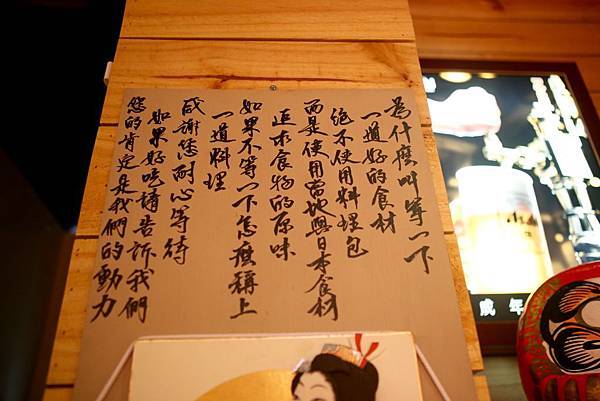 為什麼叫等一下
一道好的食材
絕不使用料理包
而是使用當地與日本食材
追求食物的原味
如果不等一下怎麼稱上
一道料理
感謝您耐心等待
如果好吃請告訴我們
您的肯定是我們的動力
成年